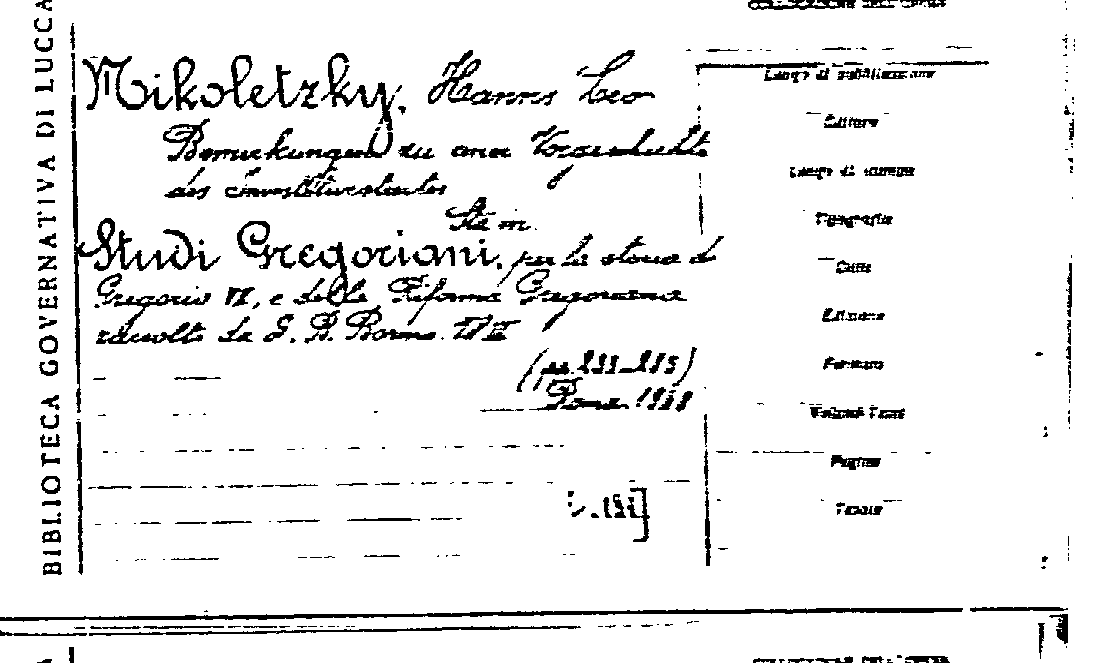 BIBLIOTECA GOVERNATIVA DI LUCCA
Mikoletzky, Hanns Leo
Bemerkungen zu einer Vorgeschichte
des Investiturstreites
Sta in.
Studi Gregoriani, per la storia di
Gregorio VII, e della Riforma Gregoriana
raccolti da G. B. Borino.
Roma.
Luogo di pubblicazione
Editore
Luogo di stampa
Tipografia
Data
Edizione
Formato
Volumi
Pagine
Tavole